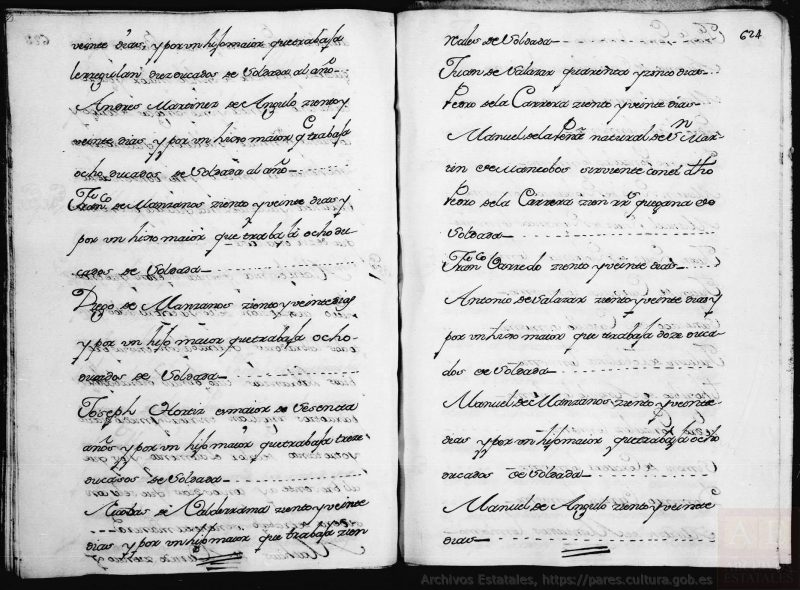 veinte dias, y por un hijo maior que trabaja
le regulan diez ducados de Soldada al año
Andres Martinez de Angulo ziento y
veinte dias y por un hijo maior q trabaja
ocho ducados de Soldada al año
Franco de Manzanos ziento y veinte dias y
por un hijo maior que trabaja ocho du
cados de Soldada
Diego de Manzanos ziento y veinte dias
y por un hijo maior que trabaja ocho
ducados de Soldada
Joseph Hortiz es maior de Sesenta
años y por un hijo maior que trabaja treze
ducados de Soldada
Nicolas de Valderrama ziento y veinte
dias y por un hijo maior que trabaja zien
624
Reales de Soldada
Juan de Salazar quarenta y zinco dias
Pedro de la Carrera ziento y veinte dias
Manuel de la Peña natural de Sn Mar
tin de Mancobos sirviente con el dho
Pedro de la Carrera zien rrs que gana de
Soldada
Franco Garredo ziento y veinte dias
Antonio de Salazar ziento y veinte dias y
por un hijo maior que trabaja doze duca
dos de Soldada
Manuel de Manzanos ziento y veinte
dias y por un hijo maior que trabaja ocho
ducados de Soldada
Manuel de Angulo ziento y veinte
dias
Archivos Estatales, https://pares.cultura.gob.es